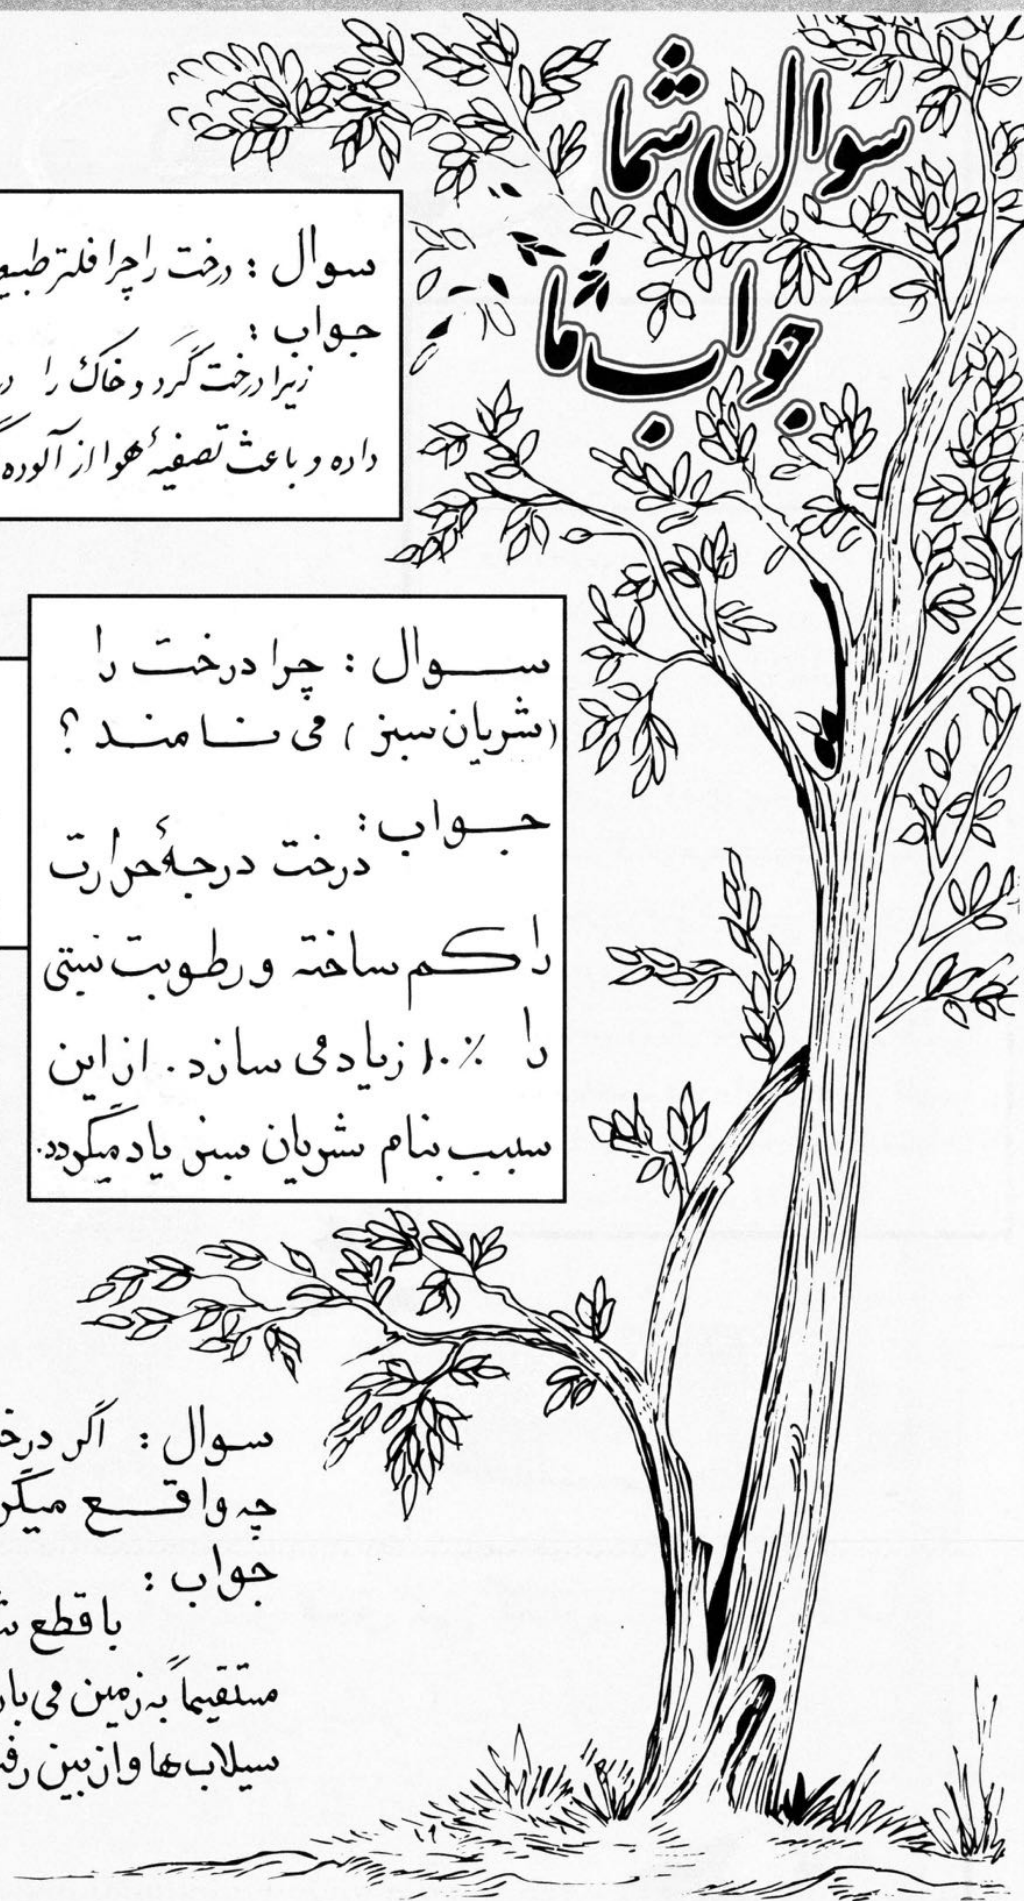 سوال شما
جواب ما
سوال : درخت را چرا فلتر طبیع
جواب :
زیرا درخت گرد و خاک را در
داده و باعث تصفیهٔ هوا از آلوده
سوال : چرا درخت را
(شریان سبز) می نامند ؟
جواب :
درخت درجهٔ حرارت
را کم ساخته و رطوبت نسبتی
را ٪۱۰ زیاد می سازد . از این
سبب بنام شریان سبز یاد میگردد.
سوال : اگر درخ
چه واقع میگر
جواب :
با قطع ش
مستقیماً به زمین می بار
سیلاب ها و از بین رفت